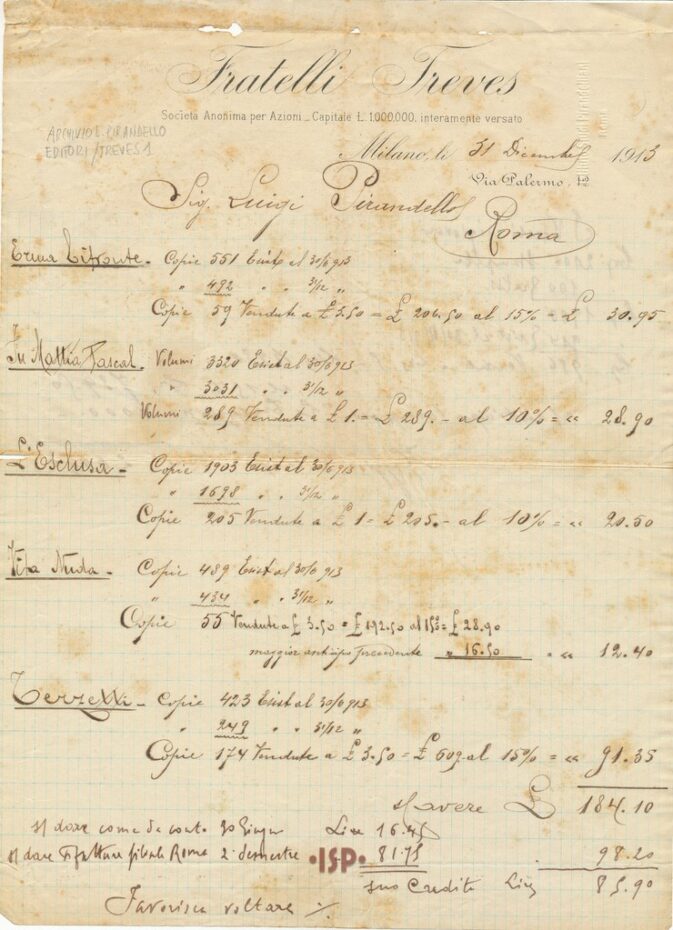 Fratelli Treves
Società Anonima per Azioni _ Capitale L. 1.000.000. interamente versato
ARCHIVIO L. PIRANDELLO
EDITORI / TREVES 1
Milano, li 31 Dicembre 1913
Via Palermo, 12
Sig. Luigi Pirandello
Roma
Erma Bifronte - Copie 551 Esist al 30/6 913
" 492 " " 31/12 "
Copie 59 Vendute a £ 3.50 = £ 206.50 al 15% = £ 30.95
Fu Mattia Pascal - Volumi 3320 Esist al 30/6 913
" 3031 " " 31/12 "
Volumi 289 Vendute a £ 1. = £ 289. - al 10% = " 28.90
L'Esclusa - Copie 1903 Esist al 30/6 913
" 1698 " " 31/12 "
Copie 205 Vendute a £ 1 = £ 205. - al 10% = " 20.50
Vita Nuda - Copie 489 Esist al 30/6 913
" 434 " " 31/12 "
Copie 55 Vendute a £ 3.50 = £ 192.50 al 15% = £ 28.90
maggior anticipo precedente " 16.50 = " 12.40
Terzetti - Copie 423 Esist al 30/6 913
" 249 " " 31/12 "
Copie 174 Vendute a £ 3.50 = £ 609 al 15% = " 91.35
s/ avere £ 184.10
s/ dare come da conto 30 Giugno Lire 16.45
s/ dare fatture filiale Roma 2° semestre 81.75 98.20
ISP
suo Credito Lire 85.90
Favorisca voltare %